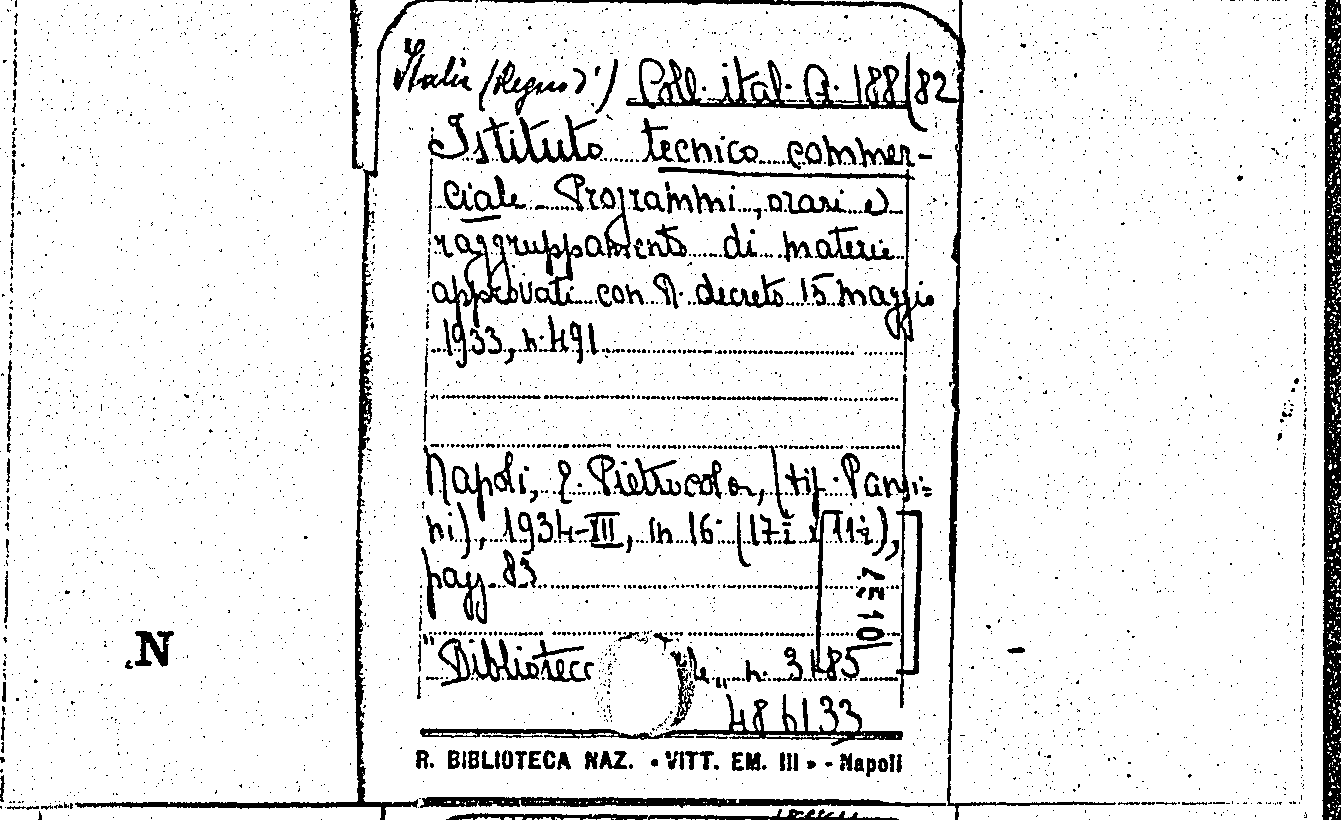 Italia (Regno d') Coll. ital. A. 188/82
Istituto tecnico commer-
ciale - Programmi, orari e
raggruppamento di materie
approvati con R. decreto 15 maggio
1933, n. 491
Napoli, E. Pietrocola, (tip. Pansi-
ni), 1934-XII, in 16° (17 x 11),
pagg. 83
"Bibliotec le„ n. 3185
486133
N
R. BIBLIOTECA NAZ. «VITT. EM. III» - Napoli